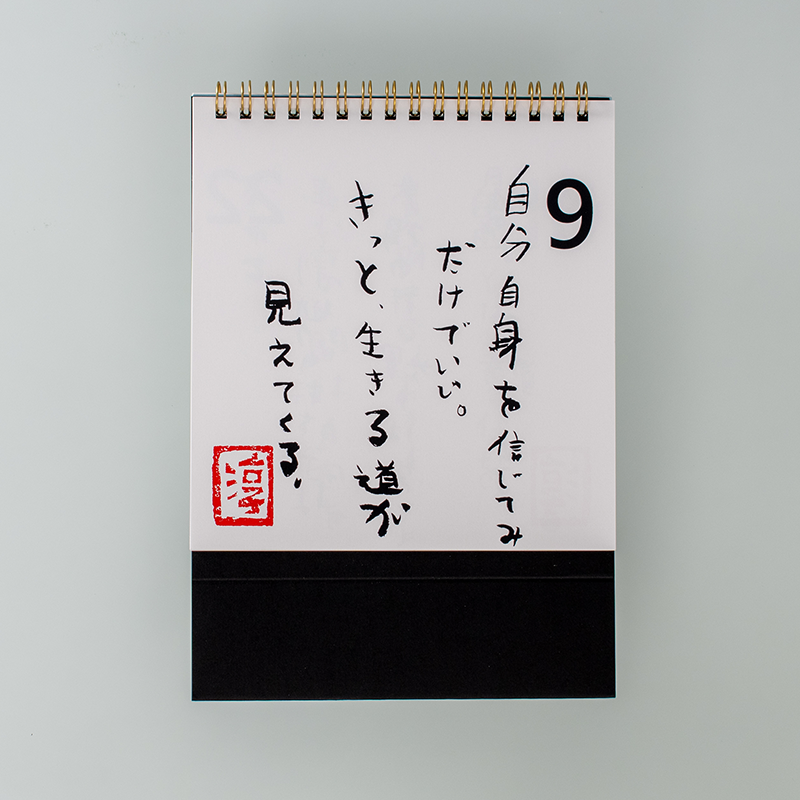 9
自分自身を信じてみ
だけでいい。
きっと、生きる道が
見えてくる。
淳